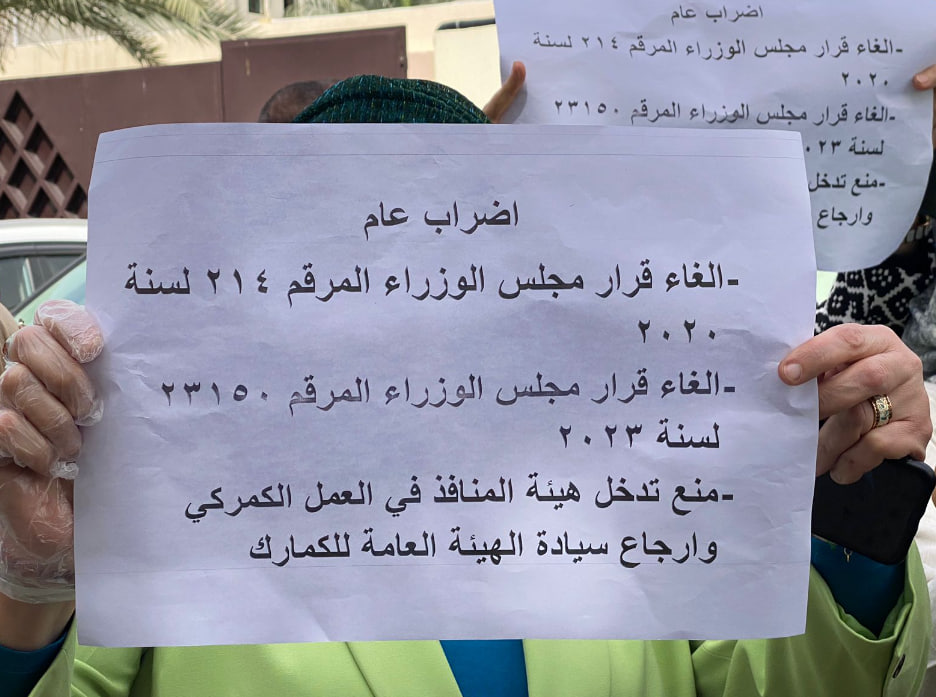 اضراب عام
-الغاء قرار مجلس الوزراء المرقم ٢١٤ لسنة
٢٠٢٠
-الغاء قرار مجلس الوزراء المرقم ٢٣١٥٠
لسنة ٢٠٢٣
-منع تدخل هيئة المنافذ في العمل الكمركي
وارجاع سيادة الهيئة العامة للكمارك
اضراب عام
-الغاء قرار مجلس الوزراء المرقم ٢١٤ لسنة
٢٠٢٠
-الغاء قرار مجلس الوزراء المرقم ٢٣١٥٠
لسنة
-منع تدخل
وارجاع